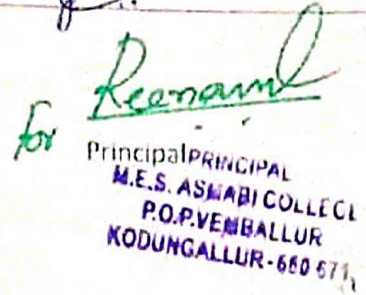 For
PrincipalPRINCIPAL
M.E.S. ASMABI COLLEGE
P.O.P.VEMBALLUR
KODUNGALLUR-680 671